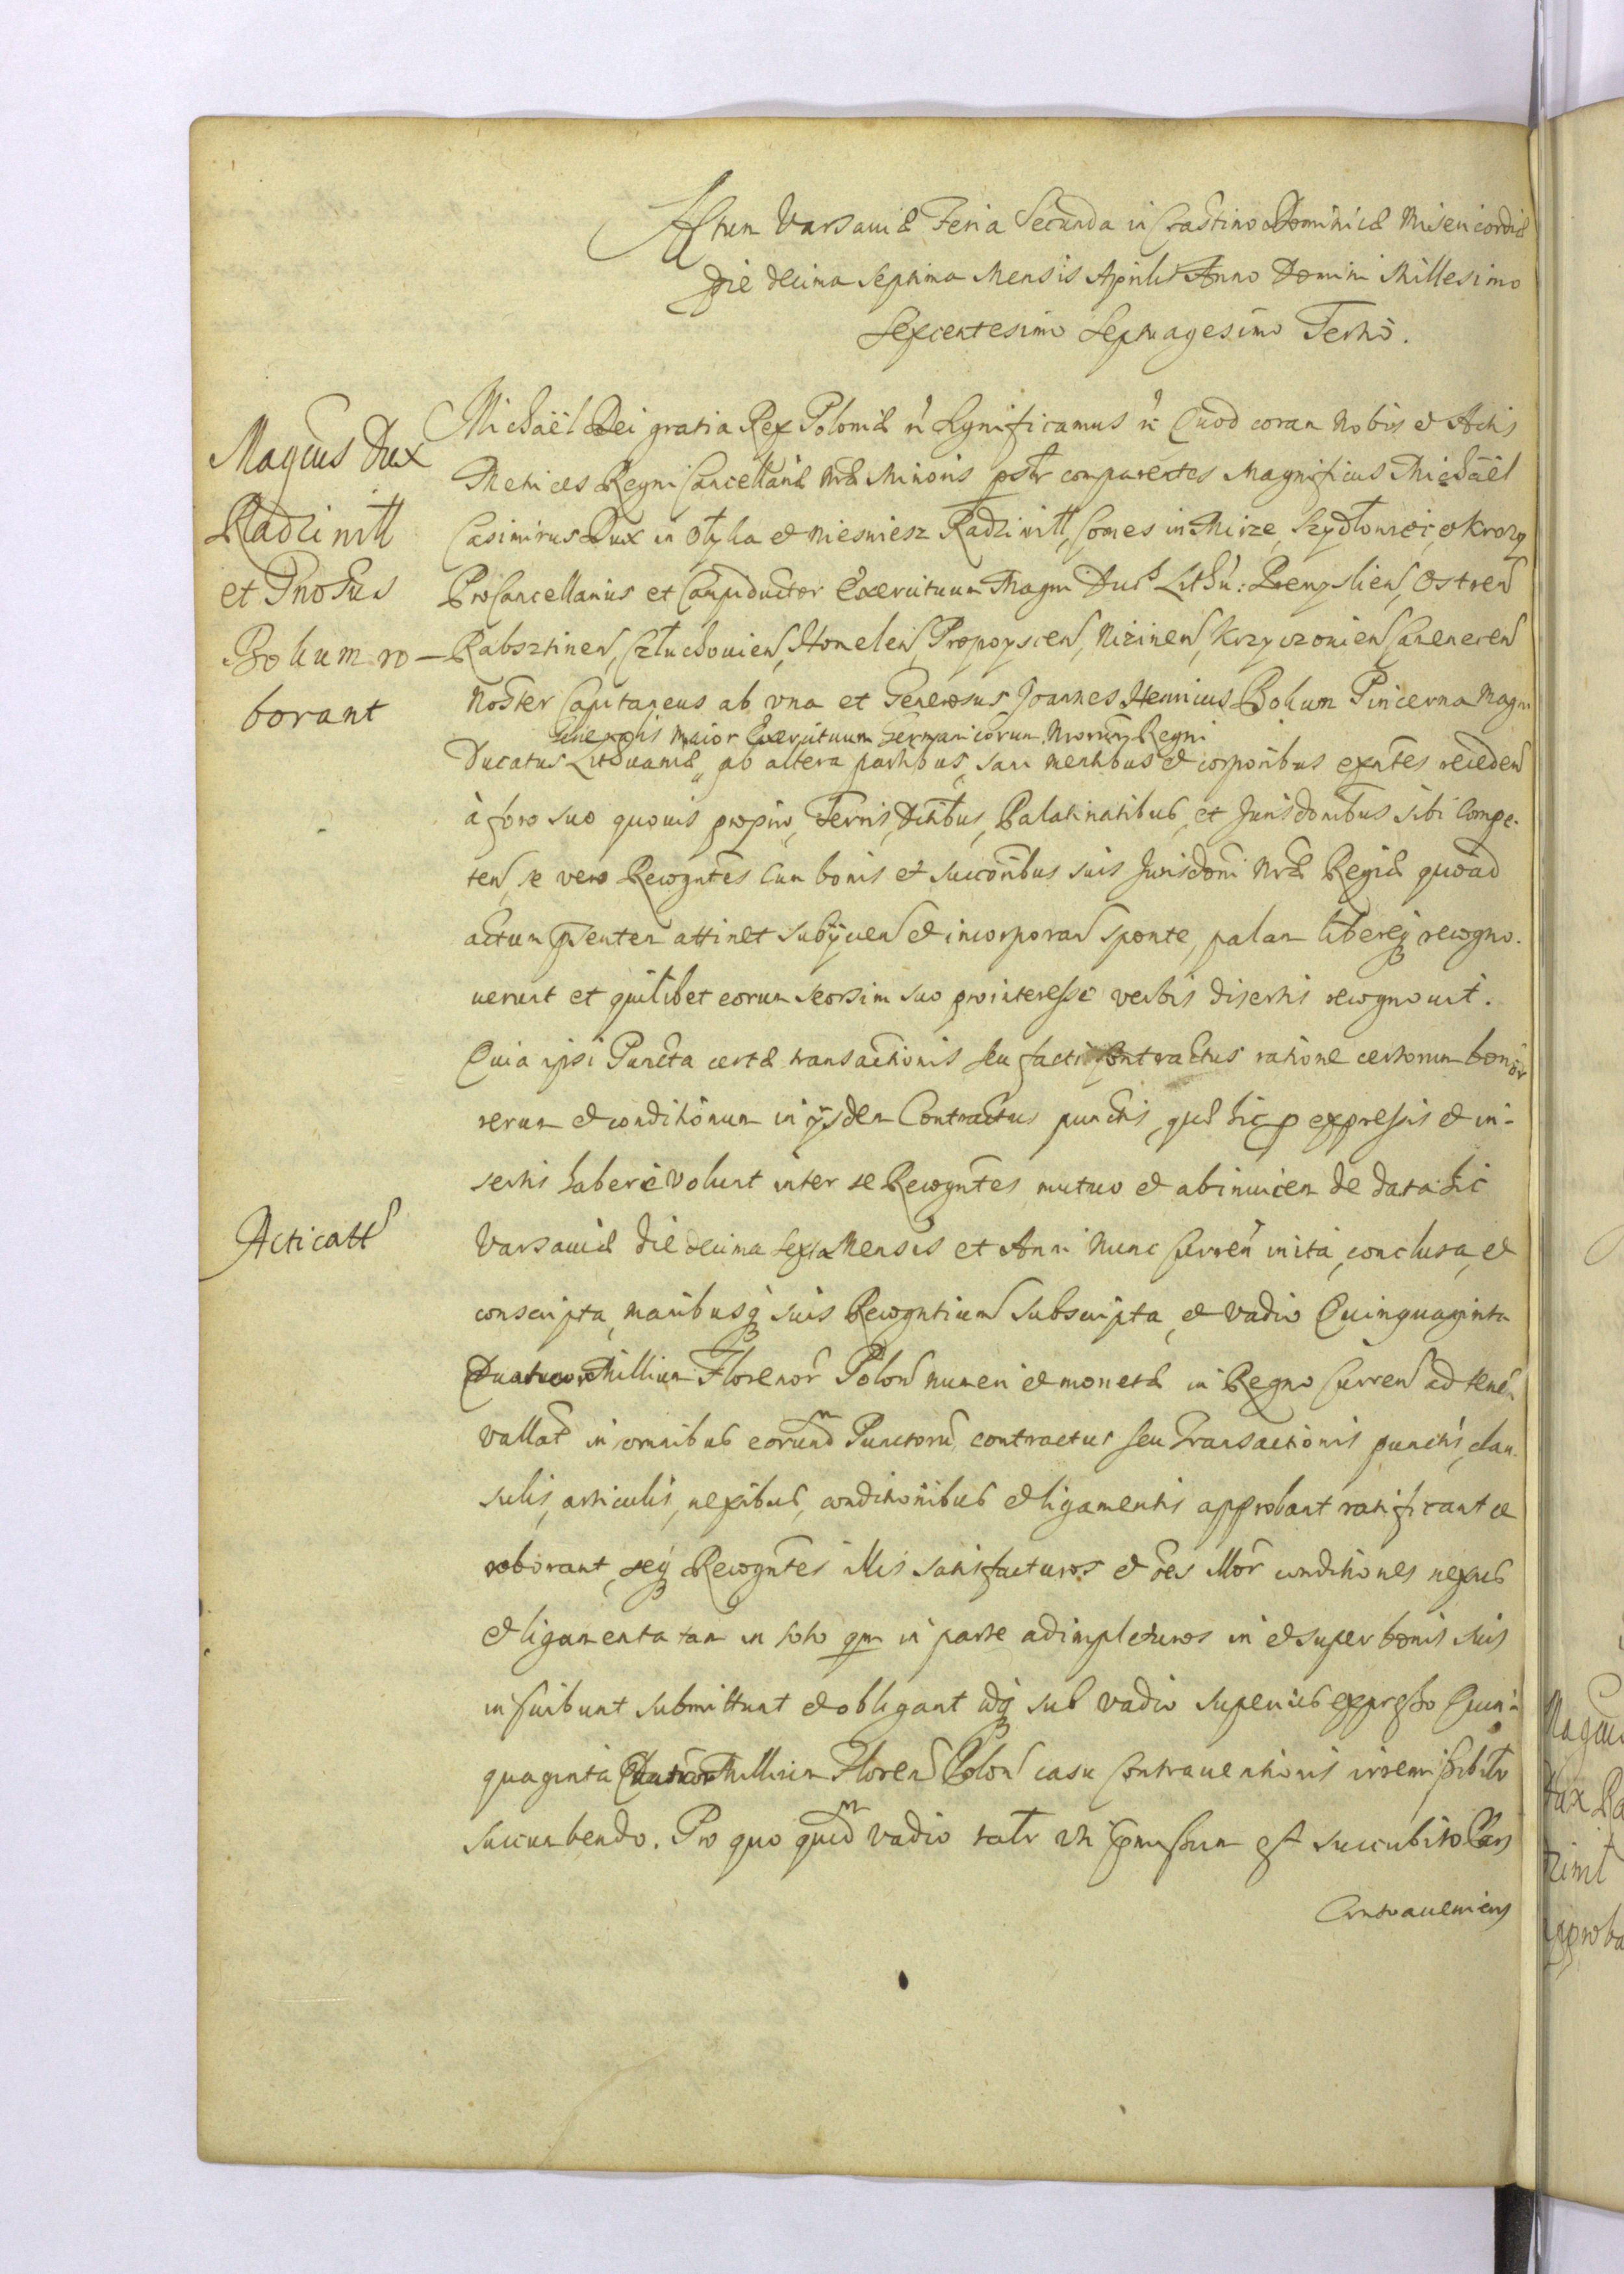 Actum Varsauiæ Feria Secunda in Crastino Dominicæ Misericordiæ
Die decima Septima Mensis Aprilis Anno Domini Millesimo
Sexcentesimo Septuagesimo Tertio.
Magcus Dux
Radziwill
et Gnosus
Bohum ro-
borant
Michaël Dei gratia Rex Poloniæ &c Significamus &c Quod coram Nobis et Actis
Metrices Regni Cancellariæ Nræ Minoris psltr comparentes Magnificus Michaël
Casimirus Dux in Olyka et Nieswiesz Radziwill, Comes in Mirze, Szydłowiec, et Krozy
ProCancellarius et Campiductor Exercituum Magni Duc Lithu: Premyslien, Ostren
Rabsztinen, Człuchouien, Homelen, Propoyscen, Nizinen, Krzyczouien Cameneren
Noster Capitaneus ab vna et Generosus Joannes Henricus Bohum Pincerna Magni
Generalis Maior Exercituum Germanicorum Nrorum Regni
Ducatus Lithuaniæ, ab altera partibus, sani mentibus et corporibus exntes receden
à foro suo quouis proprio, Terris, Dctibus, Palatinatibus, et Jurisdonibus sibi Compe-
ten, se vero Recogntes Cum bonis et succoribus suis Jurisdoni Nræ Regiæ quoad
actum pñtem attinet subÿcien et incorporan sponte, palam libereq recogno-
uerunt et quilibet eorum seorsim suo prointeresse verbis disertis recognouit.
Quia ipsi Puncta certæ transactionis seu facti Contractus ratione certorum bonor
rerum et conditionum in ÿsdem Contractus punctis, quæ hic p expressis et in-
sertis haberi volunt inter se Recogntes mutuo et abinuicem de data hic
Acticatt
Varsauiæ die decima sexta Mensis et Anni Nunc Curren inita, conclusa, et
conscripta, manibusq suis Recogntium Subscripta, et vadio Quinquaginta
Quatuor Millium Florenor Polon numeri et monetæ in Regno Curren ad tene
vallat in omnibus eorund Punctorum contractus seu Transactionis punctis, clau-
sulis, articulis, nexibus, conditionibus et ligamentis approbant ratificant et
roborant, seq Recogntes illis satisfacturos et oes illor conditiones nexus
et ligamenta tam in toto qm in parte adimpleturos in et super bonis suis
inscribunt submittunt et obligant idq sub vadio superius expresso Quin-
quaginta Quatuor Millium Floren Polon casu Contrauentionis irremissibilr
succumbendo. Pro quo quid vadio totr vti commissum est succubito Pars
Contraueniens